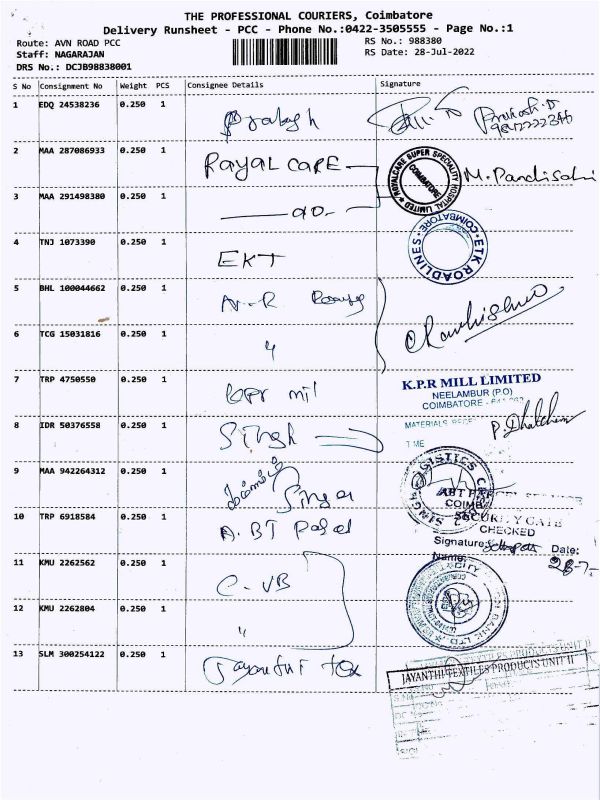 THE PROFESSIONAL COURIERS, Coimbatore
Delivery Runsheet - PCC - Phone No.:0422-3505555 - Page No.:1
Route: AVN ROAD PCC
Staff: NAGARAJAN
DRS No.: DCJB98838001
RS No.: 988380
RS Date: 28-Jul-2022
S No Consignment No Weight PCS Consignee Details Signature
1 EDQ 24538236 0.250 1 Prakash Prakash.D
2 MAA 287086933 0.250 1 RAYAL CARE
ROYALCARE SUPER SPECIALITY HOSPITAL LIMITED COIMBATORE
M. Pandiselvi
3 MAA 291498380 0.250 1 -do-
4 TNJ 1073390 0.250 1 EKT
ETK ROADLINES COIMBATORE
5 BHL 100044662 0.250 1
6 TCG 15031816 0.250 1 "
7 TRP 4750550 0.250 1 kpr mil
K.P.R MILL LIMITED
NEELAMBUR (P.O)
COIMBATORE
MATERIALS
TIME
8 IDR 50376558 0.250 1 Singh
9 MAA 942264312 0.250 1
10 TRP 6918584 0.250 1 A.BT Parcel
SECURITY GATE
CHECKED
Signature: Date:
Name: 28-7-
11 KMU 2262562 0.250 1 C.VB
12 KMU 2262804 0.250 1 "
13 SLM 300254122 0.250 1 Jayanthi Tex
JAYANTHI TEXTILES PRODUCTS UNIT II